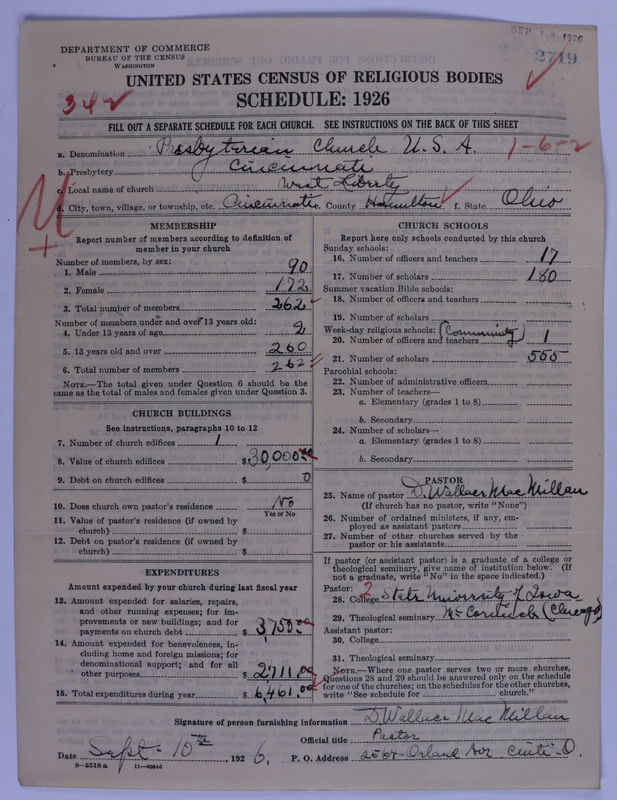 SEP 13 1926
DEPARTMENT OF COMMERCE
BUREAU OF THE CENSUS
WASHINGTON
2719
UNITED STATES CENSUS OF RELIGIOUS BODIES
342
SCHEDULE: 1926
FILL OUT A SEPARATE SCHEDULE FOR EACH CHURCH. SEE INSTRUCTIONS ON THE BACK OF THIS SHEET
a. Denomination Presbyterian Church U. S. A. 1-6-2
b. Presbytery Cincinnati
c. Local name of church West Liberty
d. City, town, village, or township, etc. Cincinnati e. County Hamilton f. State Ohio
MEMBERSHIP
Report number of members according to definition of
member in your church
Number of members, by sex:
1. Male 90
2. Female 172
3. Total number of members 262
Number of members under and over 13 years old:
4. Under 13 years of age 2
5. 13 years old and over 260
6. Total number of members 262
NOTE.—The total given under Question 6 should be the
same as the total of males and females given under Question 3.
CHURCH BUILDINGS
See instructions, paragraphs 10 to 12
7. Number of church edifices 1
8. Value of church edifices $30,000.00
9. Debt on church edifices $ 0
10. Does church own pastor's residence No
Yes or No
11. Value of pastor's residence (if owned by
church) $
12. Debt on pastor's residence (if owned by
church) $
EXPENDITURES
Amount expended by your church during last fiscal year
13. Amount expended for salaries, repairs,
and other running expenses; for im-
provements or new buildings; and for
payments on church debt $ 3,750.00
14. Amount expended for benevolences, in-
cluding home and foreign missions; for
denominational support; and for all
other purposes $ 2711.00
15. Total expenditures during year $ 6,461.00
CHURCH SCHOOLS
Report here only schools conducted by this church
Sunday schools:
16. Number of officers and teachers 17
17. Number of scholars 180
Summer vacation Bible schools:
18. Number of officers and teachers
19. Number of scholars
Week-day religious schools: (Community)
20. Number of officers and teachers 1
21. Number of scholars 555
Parochial schools:
22. Number of administrative officers
23. Number of teachers—
a. Elementary (grades 1 to 8)
b. Secondary
24. Number of scholars—
a. Elementary (grades 1 to 8)
b. Secondary
PASTOR
25. Name of pastor D. Wallace MacMillan
(If church has no pastor, write "None")
26. Number of ordained ministers, if any, em-
ployed as assistant pastors
27. Number of other churches served by the
pastor or his assistants
If pastor (or assistant pastor) is a graduate of a college or
theological seminary, give name of institution below. (If
not a graduate, write "No" in the space indicated.)
Pastor: 2
28. College State University of Iowa
29. Theological seminary McCormick (Chicago)
Assistant pastor:
30. College
31. Theological seminary
NOTE.—Where one pastor serves two or more churches,
Questions 28 and 29 should be answered only on the schedule
for one of the churches; on the schedules for the other churches,
write "See schedule for church."
Signature of person furnishing information D. Wallace MacMillan
Official title Pastor
Date Sept. 10th, 1926. P. O. Address 2567 Orland Ave Cinti O.
8-5518a 11-9584d